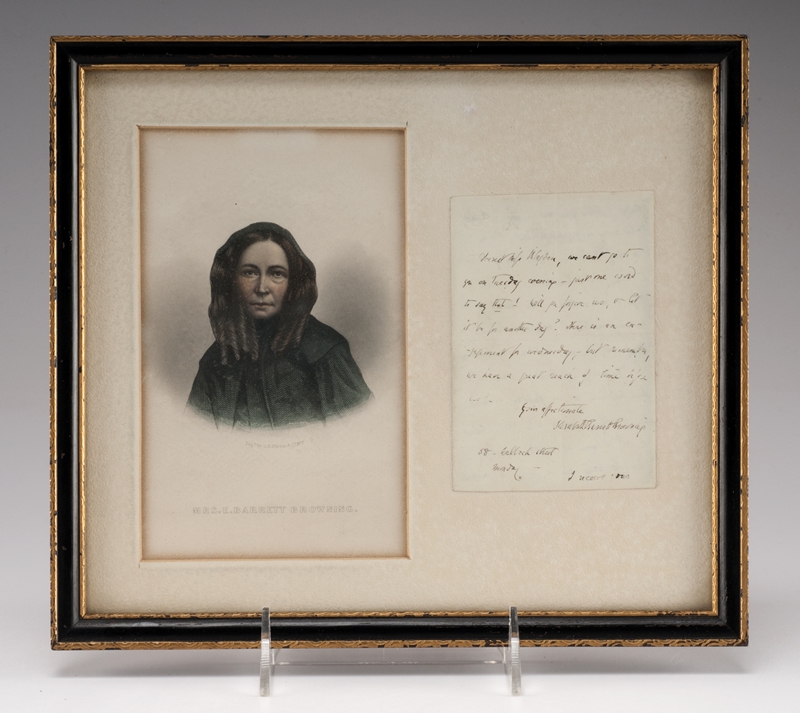 MRS. E. BARRETT BROWNING.
Dearest Miss we cant go to
you on Tuesday evening - just one word
to say that! Will you forgive us, & let
it be for another day? there is an en-
-gagement for wednesday, - but remember,
we have a great reach of time before
Your affectionate
Elizabeth Barrett Browning
58. Welbeck Street
Monday